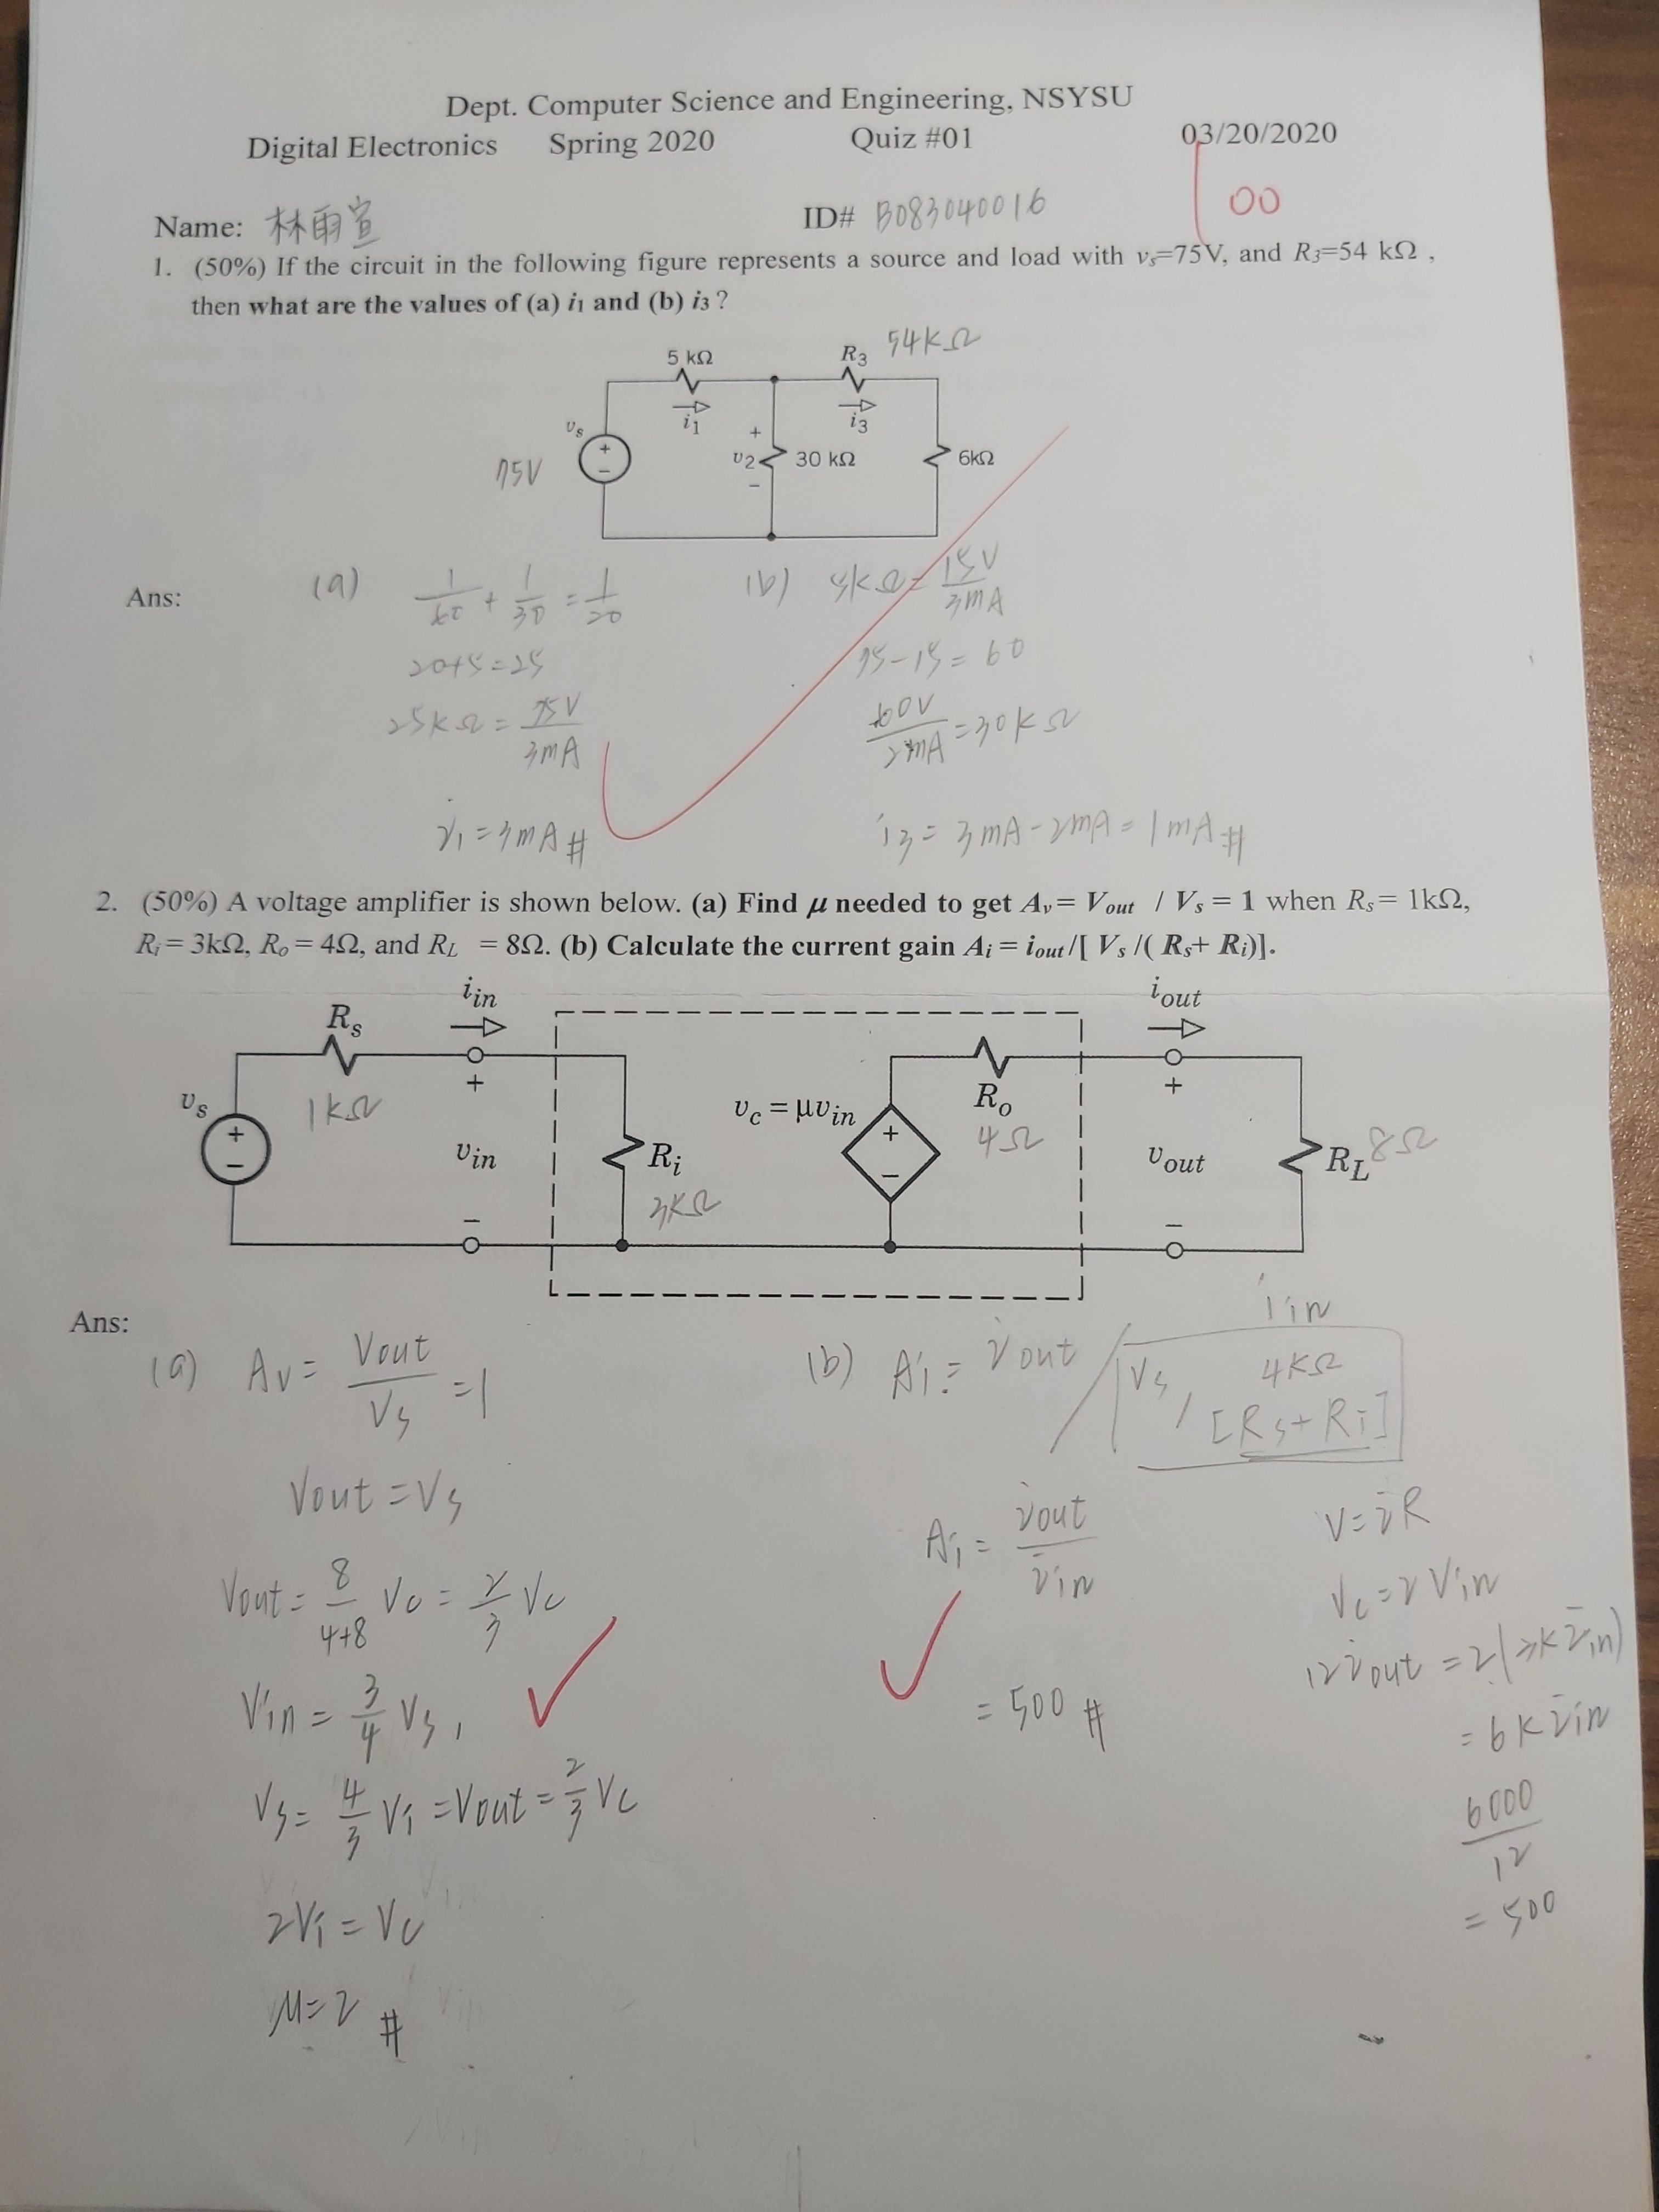 Dept. Computer Science and Engineering, NSYSU
Digital Electronics Spring 2020 Quiz #01 03/20/2020
100
Name: 林雨宣 ID# B083040016
1. (50%) If the circuit in the following figure represents a source and load with vs=75V, and R3=54 kΩ ,
then what are the values of (a) i1 and (b) i3 ?
5 kΩ R3 54kΩ
i1 i3
vs + − 75V
+ v2 − 30 kΩ 6kΩ
Ans:
(a)
1/60 + 1/30 = 1/20
20+5=25
25kΩ = 75V/3mA
i1 = 3mA #
(b)
5kΩ = 15V/3mA
75-15=60
60V/2mA = 30kΩ
i3 = 3mA - 2mA = 1mA #
2. (50%) A voltage amplifier is shown below. (a) Find μ needed to get Av = Vout / Vs = 1 when Rs = 1kΩ,
Ri = 3kΩ, Ro = 4Ω, and RL = 8Ω. (b) Calculate the current gain Ai = iout /[ Vs /( Rs+ Ri)].
Rs iin iout
vs + − 1kΩ
+ vin −
Ri 3kΩ
vc = μvin + −
Ro 4Ω
+ vout −
RL 8Ω
Ans:
(a) Av = Vout/Vs = 1
Vout = Vs
Vout = 8/4+8 Vc = 2/3 Vc
Vin = 3/4 Vs,
Vs = 4/3 Vi = Vout = 2/3 Vc
2Vi = Vc
μ = 2 #
(b) Ai = iout / Vs / [Rs+Ri]
iin
4kΩ
Ai = iout/iin
= 500 #
V = iR
Vc = 2Vin
12iout = 2(3k iin)
= 6k iin
6000/12
= 500